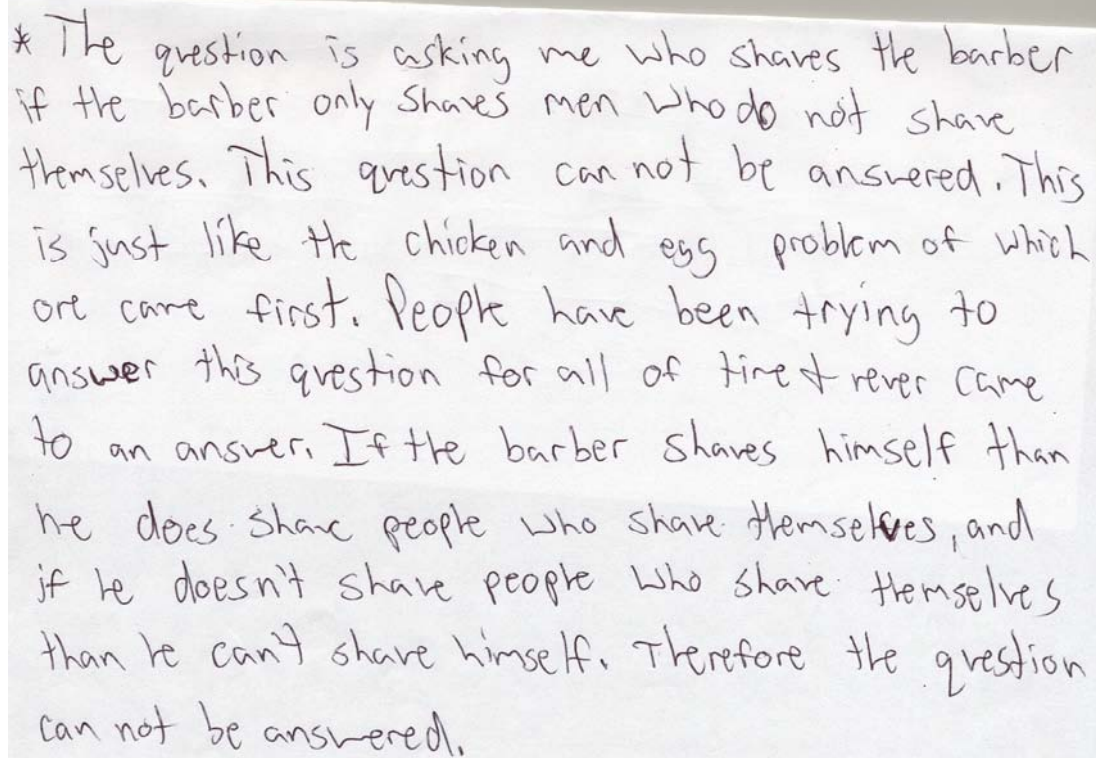 * The question is asking me who shaves the barber
if the barber only shaves men who do not shave
themselves. This question can not be answered. This
is just like the chicken and egg problem of which
one came first. People have been trying to
answer this question for all of time & never came
to an answer. If the barber shaves himself than
he does shave people who shave themselves, and
if he doesn't shave people who shave themselves
than he can't shave himself. Therefore the question
can not be answered.